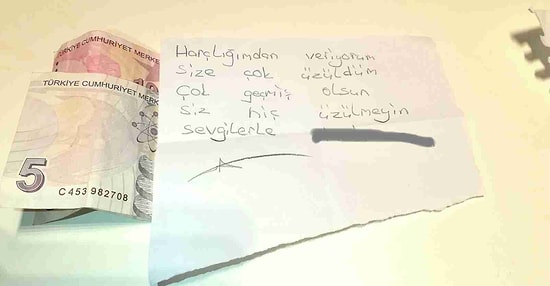 TÜRKİYE CUMHURİYET MERKE
TÜRKİYE CUMHURİYET MERK
5
C453982708
Harçlığımdan veriyorum
size çok üzüldüm
Çok geçmiş olsun
Siz hiç üzülmeyin
sevgilerle